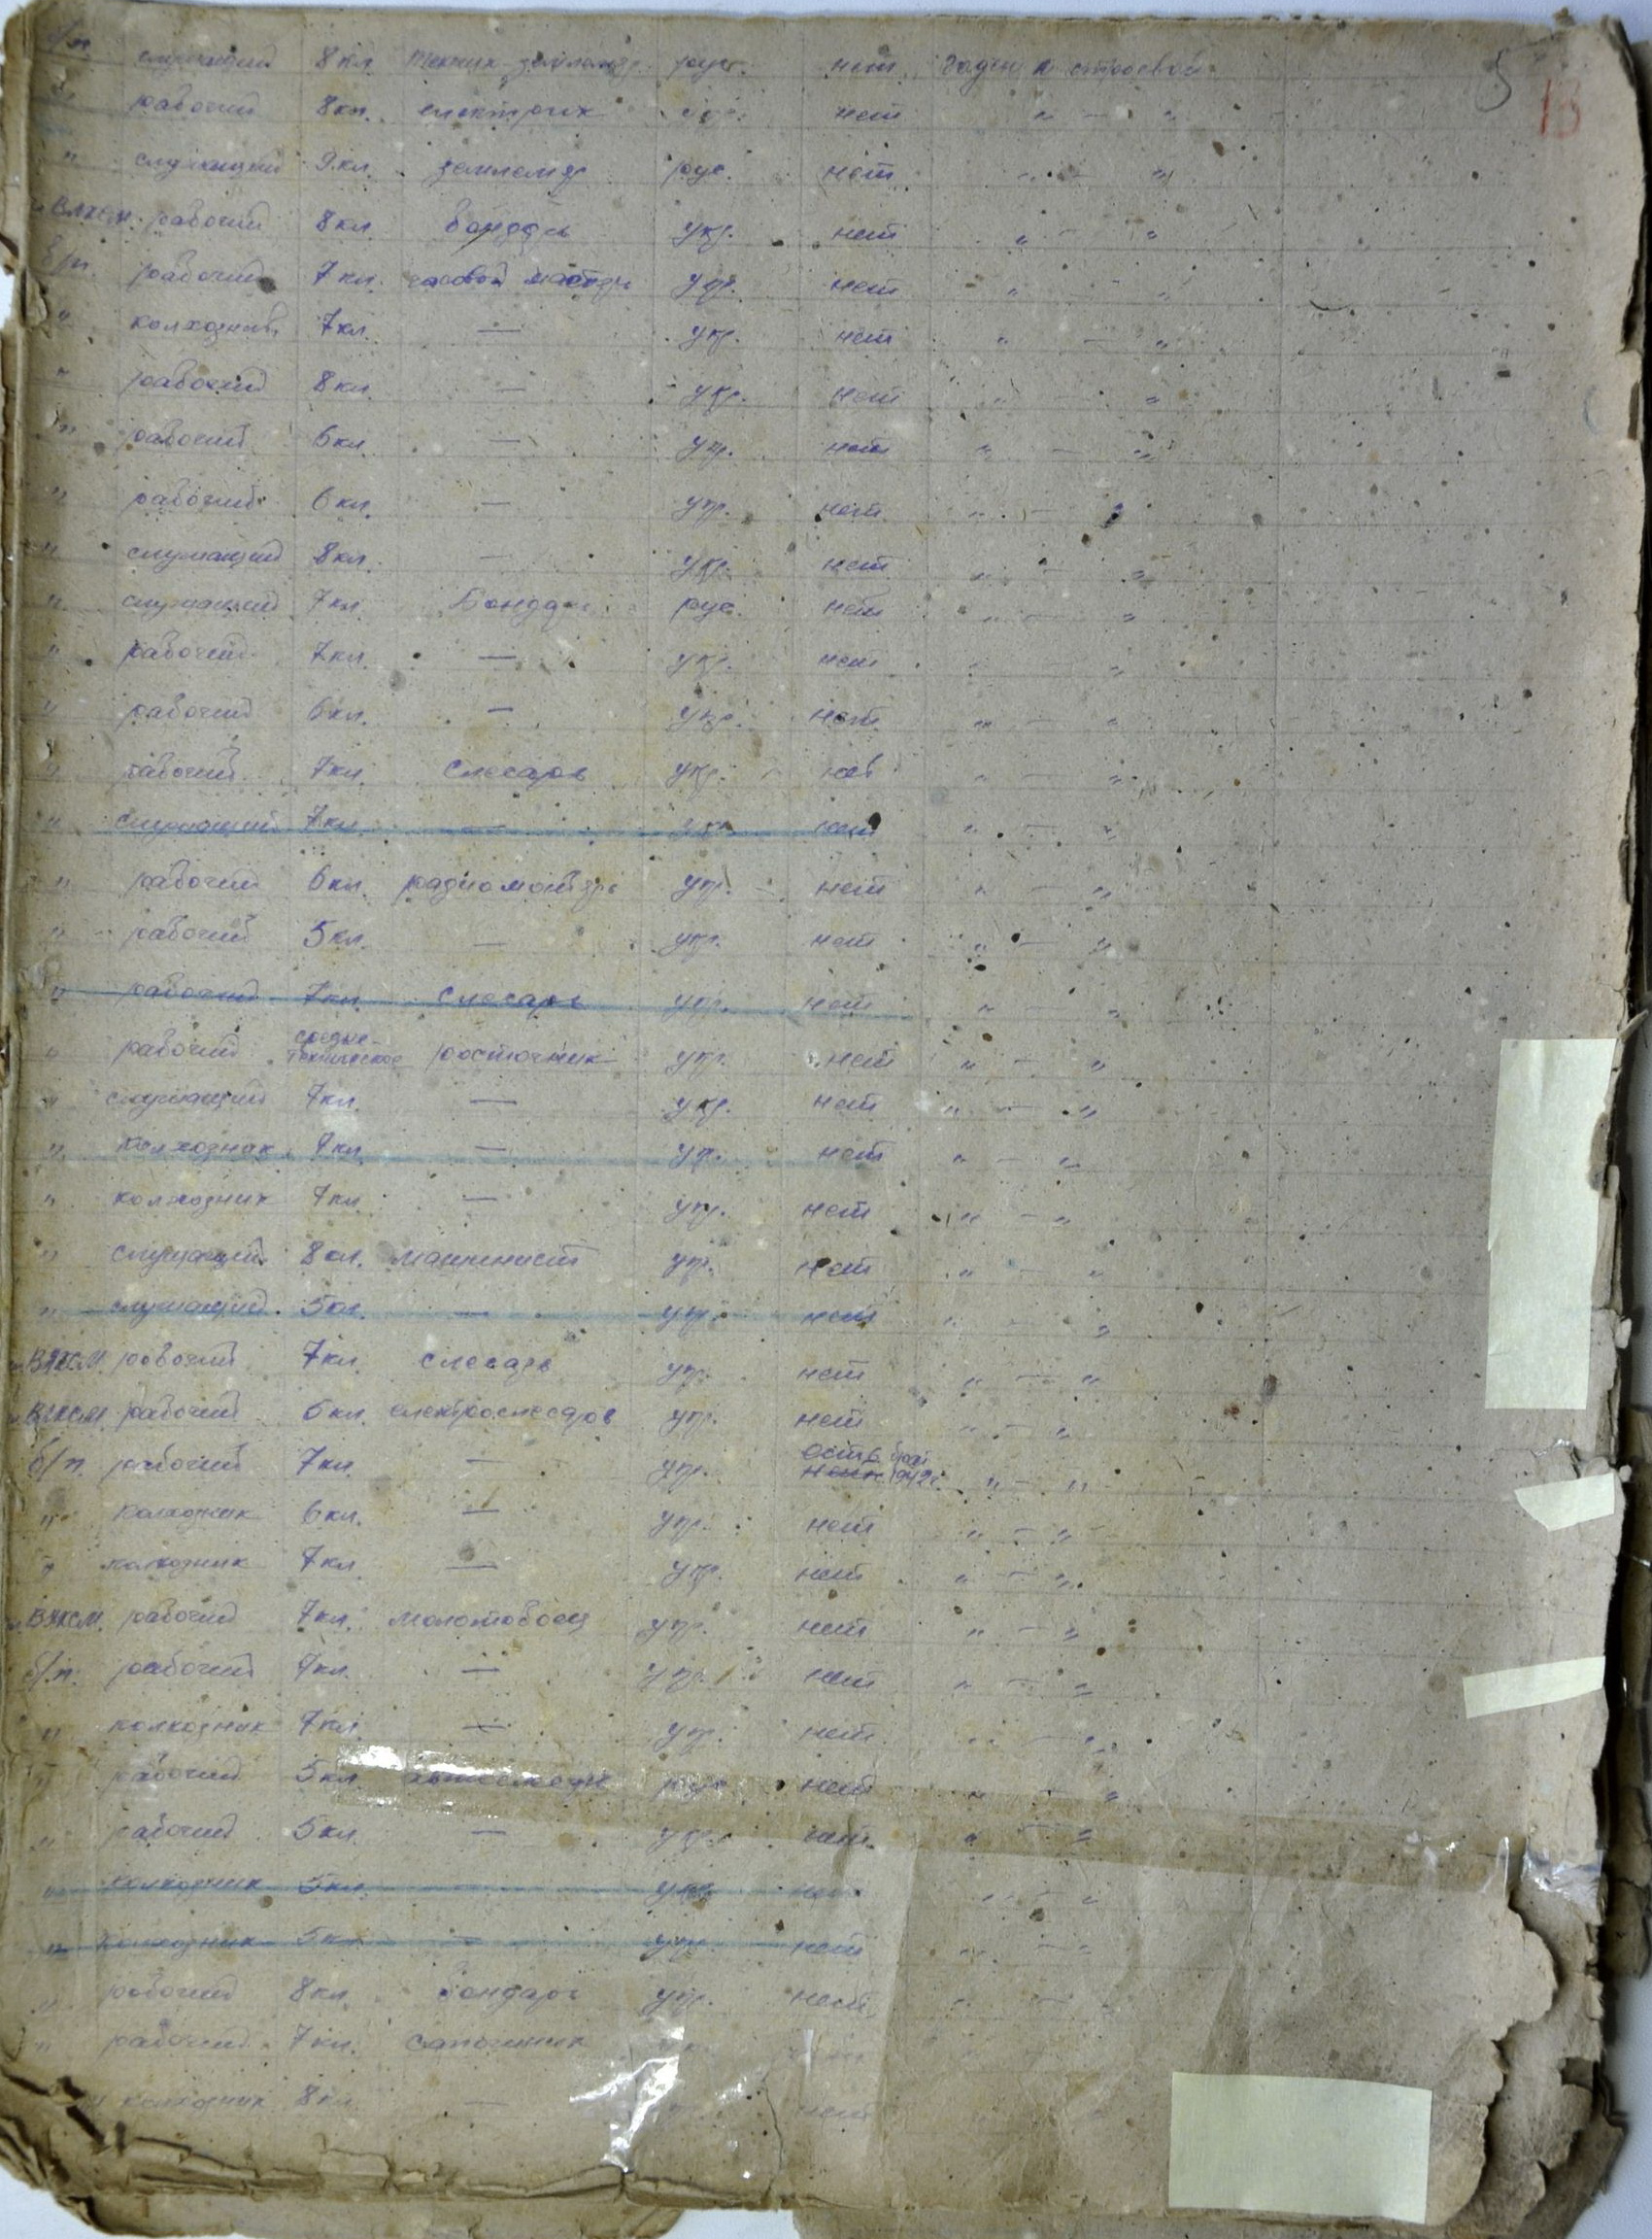 б/п. служащий 8 кл. техник землемер рус. нет годен к строевой
" рабочий 8 кл. електрик укр. нет " — "
" служащий 9 кл. землемер рус. нет " — "
ВЛКСМ. рабочий 8 кл. бондарь укр. нет " — "
б/п. рабочий 7 кл. часовой мастер укр. нет " — "
" колхозник 7 кл. — укр. нет " — "
" рабочий 8 кл. — укр. нет " — "
" рабочий 6 кл. — укр. нет " — "
" рабочий 6 кл. — укр. нет " — "
" служащий 8 кл. — укр. нет " — "
" служащий 7 кл. Бондарь рус. нет " — "
" рабочий 7 кл. — укр. нет " — "
" рабочий 6 кл. — укр. нет " — "
" рабочий 7 кл. слесарь укр. нет " — "
" служащий 7 кл. — укр. нет " — "
" рабочий 6 кл. радиомонтер укр. нет " — "
" рабочий 5 кл. — укр. нет " — "
" рабочий 7 кл. слесарь укр. нет " — "
" рабочий средне-техническое расточник укр. нет " — "
" служащий 7 кл. — укр. нет " — "
" колхозник 7 кл. — укр. нет " — "
" колхозник 7 кл. — укр. нет " — "
" служащий 8 кл. машинист укр. нет " — "
" служащий 5 кл. — укр. нет " — "
ВЛКСМ. рабочий 7 кл. слесарь укр. нет " — "
ВЛКСМ рабочий 6 кл. електрослесарь укр. нет " — "
б/п. рабочий 7 кл. — укр. есть брат нет 1942 г. " — "
" колхозник 6 кл. — укр. нет " — "
" колхозник 7 кл. — укр. нет " — "
ВЛКСМ. рабочий 7 кл. молотобоец укр. нет " — "
б/п. рабочий 7 кл. — укр. нет " — "
" колхозник 7 кл. — укр. нет " — "
" рабочий 5 кл. рус. нет " — "
" рабочий 5 кл. — укр. нет " — "
" колхозник 5 кл. — укр. нет " — "
" колхозник 5 кл. — укр. нет " — "
" рабочий 8 кл. бондарь укр. нет " — "
" рабочий 7 кл. сапожник
" колхозник 8 кл. — нет
5
13